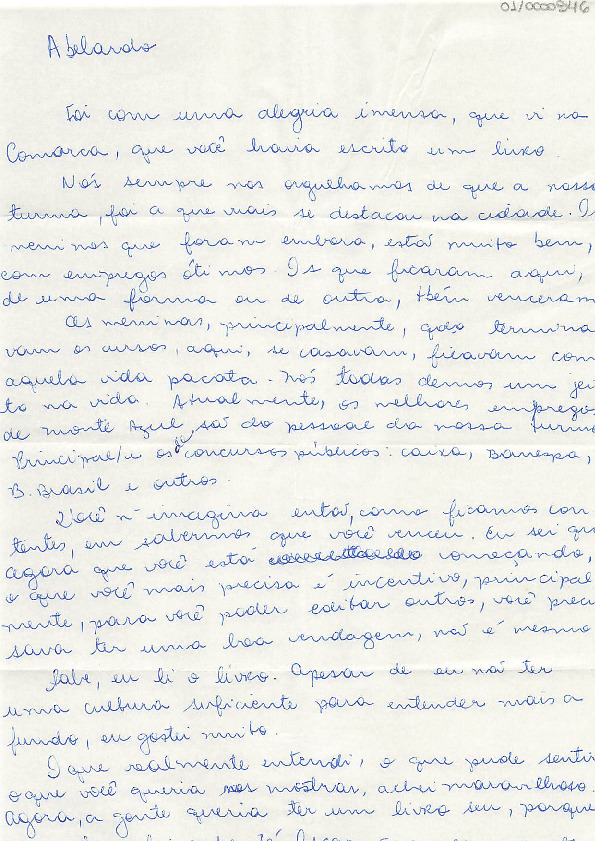 01/0000846
Abelardo
Foi com uma alegria imensa, que vi na
Comarca, que você havia escrito um livro.
Nós sempre nos orgulhamos de que a nossa
turma, foi a que mais se destacou na cidade. Os
meninos que foram embora, está muito bem,
com empregos ótimos. Os que ficaram aqui,
de uma forma ou de outra, tbém venceram
As meninas, principalmente, que termina
vam os cursos, aqui, se casavam, ficavam com
aquela vida pacata. Nós todas demos um jei
to na vida. Atualmente, os melhores empregos
de Monte Azul, sai do pessoal da nossa turma
Principal/e os de concursos públicos: caixa, Banespa,
B. Brasil e outros.
Você ñ imagina entaõ, como ficamos con
tentes, em sabermos que você venceu. Eu sei que
agora que você está começando,
o que você mais precisa é incentivo, principal
mente, para você poder editar outros, você preci
sava ter uma boa vendagem, naõ é mesmo
Sabe, eu li o livro. Apesar de eu naõ ter
uma cultura suficiente para entender mais a
fundo, eu gostei muito.
O que realmente entendi, o que pude sentir
o que você queria nos mostrar, achei maravilhoso.
Agora, a gente queria ter um livro seu, porque